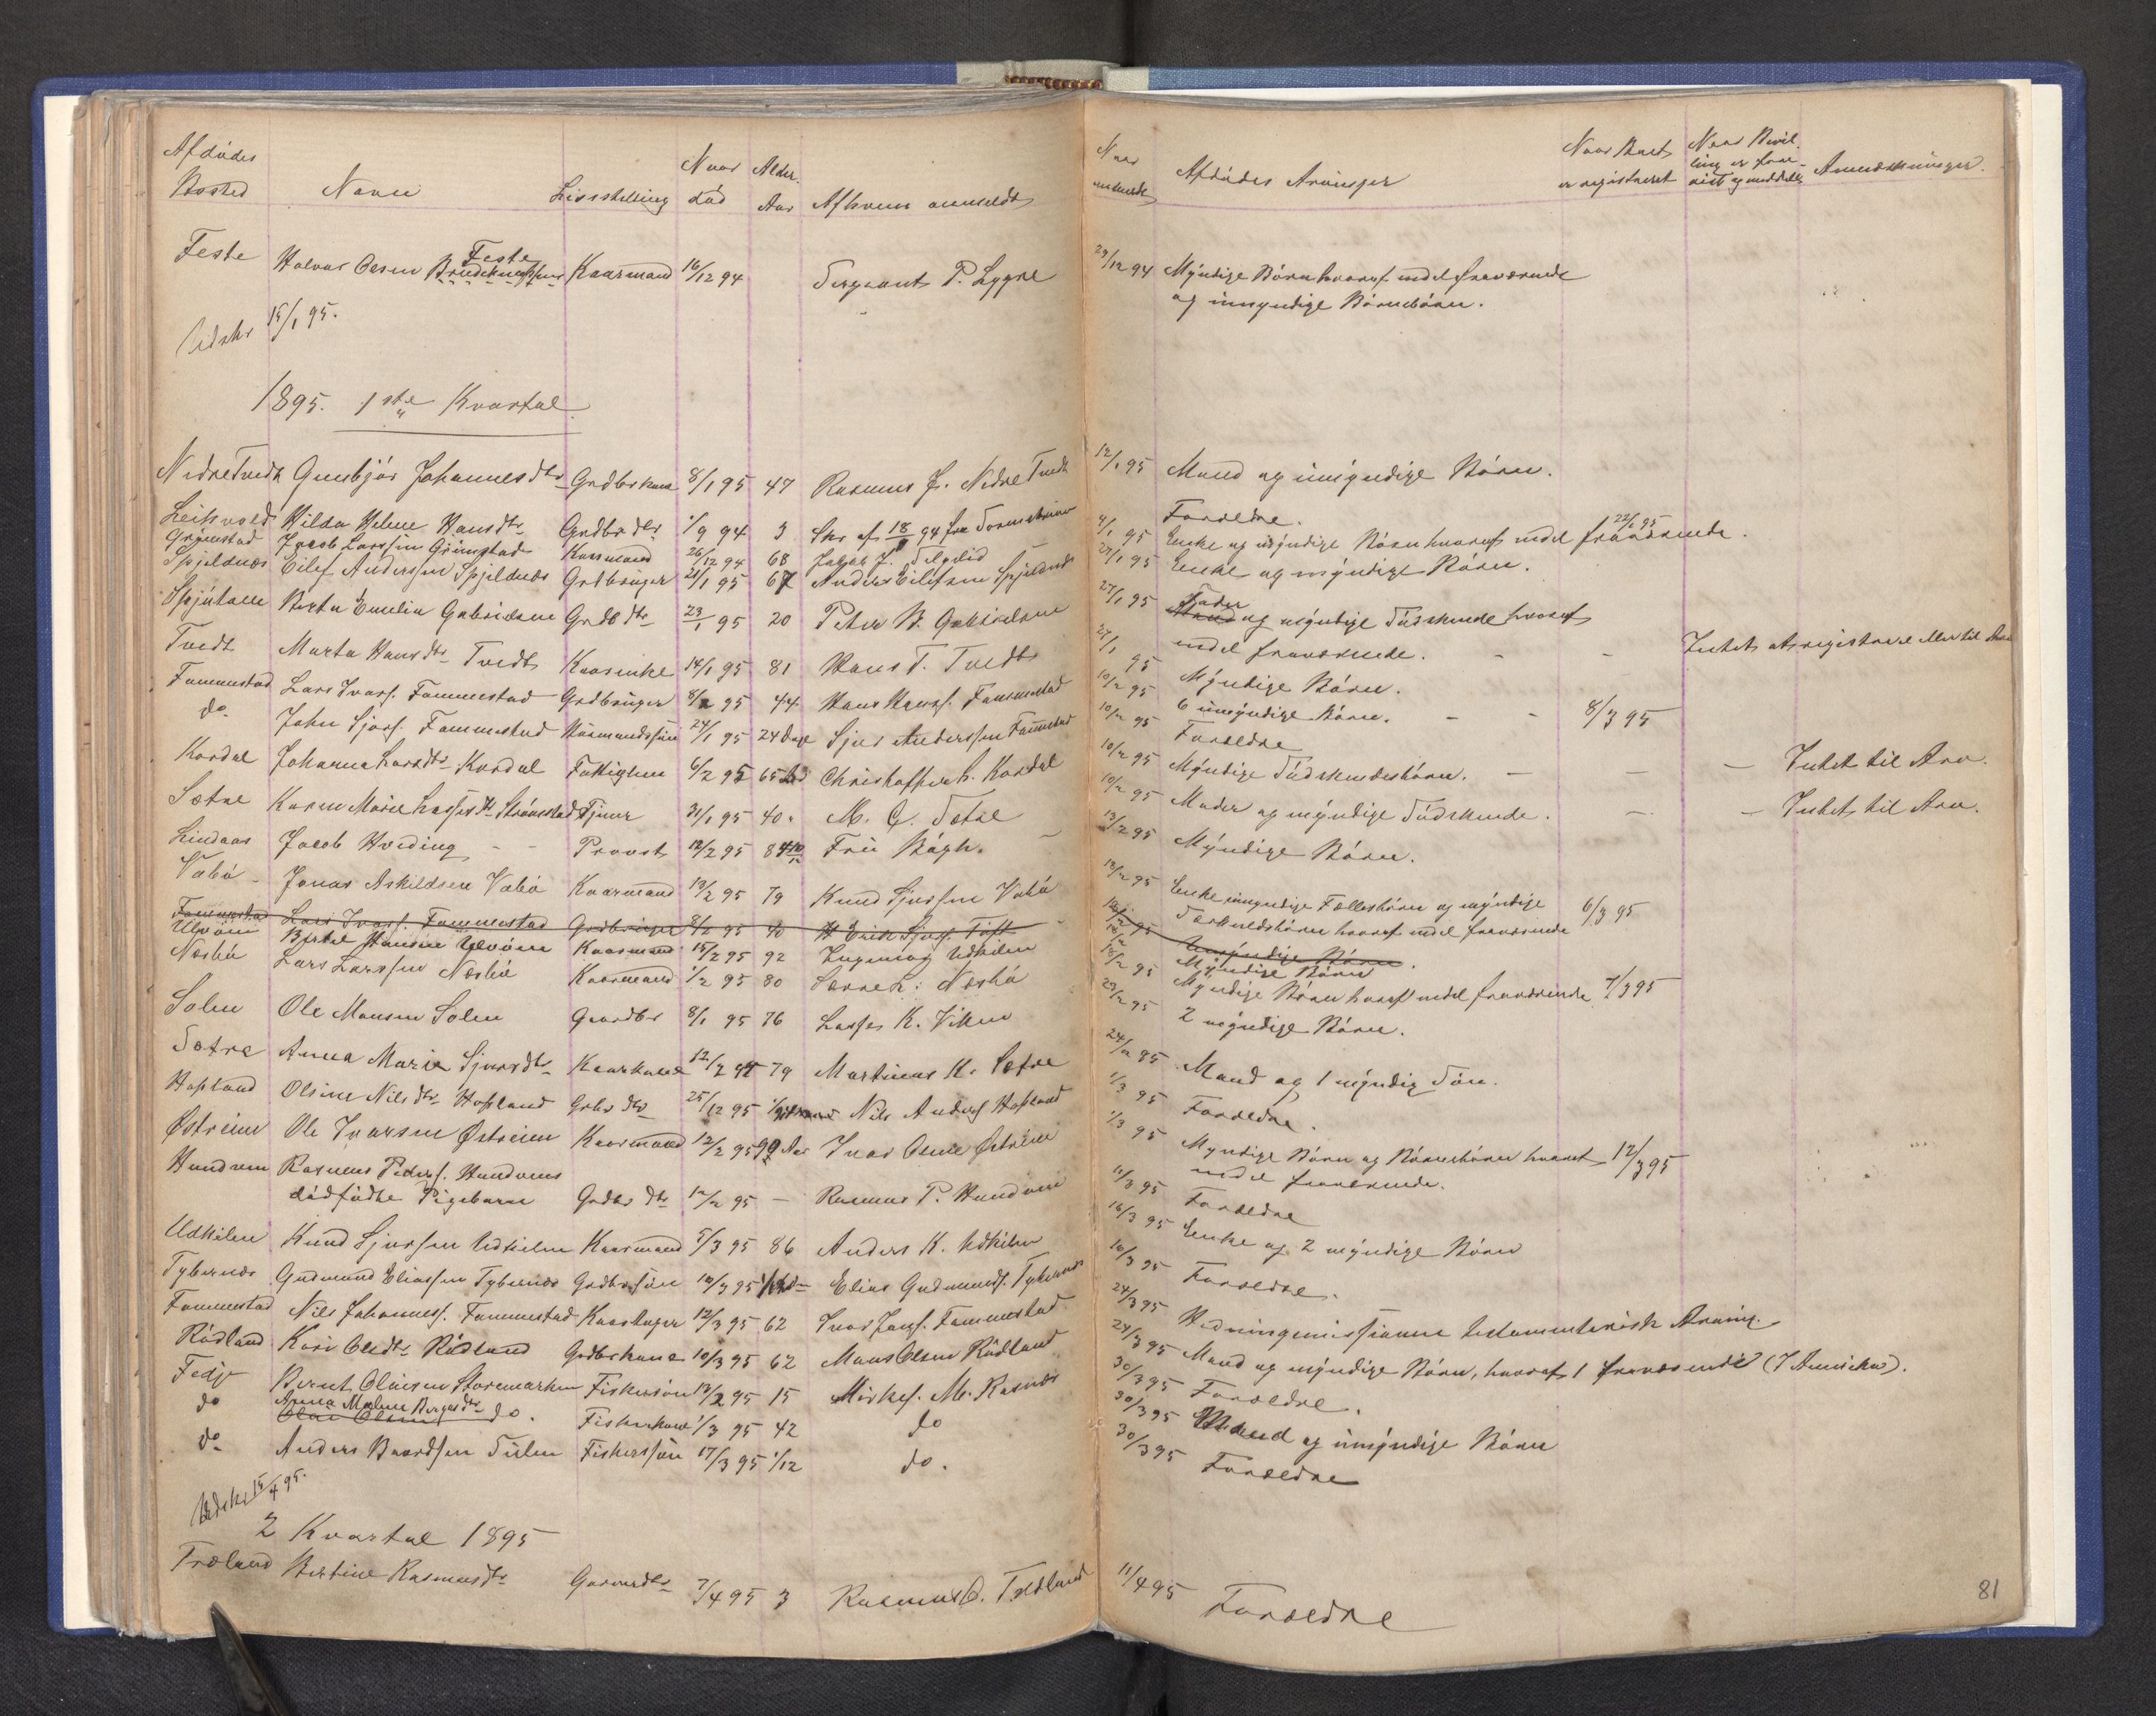 Afdödes Bosted Navn Livsstilling Naar död Alder. Aar Afhvem anmeldt Naar anmeldt Afdödes Arvinger Naar Boet er registreret Naar Bevilling er foreвist og meddelt Anmærkninger.
Feste Halvor Olsen Feste Kaarmand 16/12 94 Sergeant P. Lygre 29/12 94 Myndige Börn hvoraf endel fraværende
og umyndige Börnebörn.
Udskr 15/1 95.
1895. 1ste Kvartal
Nedre Tvedt Gunbjör Johannesdtr Grdbrkone 8/1 95 47 Rasmus J. Nedre Tvedt 12/1 95 Mand og umyndige Börn.
Leikvold Hilda Helene Hansdtr Grdbrdtr 1/9 94 3 Skr af 18 94 fra Forældre.
Grimstad Jacob Larssen Grimstad Kaarmand 26/12 94 68 Jakob J. 4/1 95 Enke og myndige Börn hvoraf endel fraværende. 22/1 95
Spjeldnæs Eilef Anderssen Spjeldnæs Grdbruger 21/1 95 67 Anders Eilefsen Spjeldnæs 27/1 95 Enke og myndige Börn.
Berta Emilia Gabrielsen Grdbdtr 23/1 95 20 Peter B. Gabrielsen 27/1 95 Fader og myndige Södskende hvoraf
endel fraværende. - - Intet at registrere eller til Arv
Tvedt Marta Hansdtr Tvedt Kaarenke 14/1 95 81 Hans T. Tvedt 27/1 95 Myndige Börn.
Fammestad Lars Ivars. Fammestad Grdbruger 8/2 95 44 Hans Hans. Fammestad 10/2 95 6 umyndige Börn. - - 8/3 95
do. John Sjurs. Fammestad Husmandssön 24/1 95 24 Dage Sjur Anderssen Fammestad 10/2 95 Forældre
Kordal Johanna Larsdtr Kordal Fattiglem 6/2 95 65 Christoffer L. Kordal 10/2 95 Myndige Södskendebörn. - - - Intet til Arv.
Sætre Karen Marie Lassesdtr Strömstad Tjener 31/1 95 40. M. C. Sætre 10/2 95 Moder og myndige Södskende. - - Intet til Arv.
Lindaas Jacob Hveding - - Provst 12/2 95 84 10/12 Frü Bögh. 13/2 95 Myndige Börn.
Vabö - Jonas Askildsen Vabö Kaarmand 13/2 95 79 Knud Sjursen Vabö 13/2 95 Enke umyndige Fællesbörn og myndige 6/3 95
Særkuldsbörn hvoraf endel fraværende
Fammestad Lars Ivars. Fammestad Grdbruger 8/2 95 40 Erik Sjurs. Toft 16/2 95 Umyndige Börn.
Ulvöen Bertel Hansen Ulvöen Kaarmand 15/2 95 92 Ingemag Udkilen Myndige Börn
Næsbö Lars Larssen Næsbö Kaarmand 1/2 95 80 Særre L. Næsbö 95 Myndige Börn hvoraf endel fraværende 7/3 95
Solem Ole Monsen Solem Gaardbr 8/1 95 76 Lasse K. Viken 23/2 95 2 myndige Börn.
Sætre Anna Marie Sjursdtr Kaarkone 12/2 95 79 Martinus K. Sætre 24/2 95 Mand og 1 myndig Sön.
Hopland Olsine Nilsdtr Hopland Grbrdtr 25/12 95 Nils Anders. Hopland 1/3 95 Forældre.
Østreim Ole Ivarsen Østreim Kaarmand 12/2 95 99 Aar Ivar Olsen Østreim 1/3 95 Myndige Börn og Börnebörn hvoraf 12/3 95
endel fraværende.
Hundven Rasmus Peders. Hundvens
dödfödte Pigebarn Grdbrdtr 12/2 95 - Rasmus P. Hundven 11/3 95 Forældre
Udkilen Knud Sjursen Udkilen Kaarmand 5/3 95 86 Anders K. Udkilen 16/3 95 Enke og 2 myndige Börn
Tybernæs Gudmund Eliassen Tybernæs Grdbrsön 10/3 95 Elias Gudmunds. Tybernæs 16/3 95 Forældre.
Fammestad Nils Johannes. Fammestad Kaartager 12/3 95 62 Ivar Jans. Fammestad 24/3 95 Hedningemissionen testamentarisk Arving.
Rödland Kari Olsdtr Rödland Grdbrkone 10/3 95 62 Mons Olsen Rödland 24/3 95 Mand og myndige Börn, hvoraf 1 fraværende (I Amerika).
Fedje Bernt Olaisen Stormarken Fiskersön 13/2 95 15 Mikkel M. Rasnæs 30/3 95 Forældre.
do Anna Malene Børgesdtr Olai Olsens do. Fiskerkone 1/3 95 42 do 30/3 95 Mand og umyndige Börn
do Anders Baardsen Sulen Fiskersön 17/3 95 1/12 do. 30/3 95 Forældre
Udskr 15/4 95.
2 Kvartal 1895
Træland Bertine Rasmusdtr Gaardbrdtr 7/4 95 3 Rasmus O. Trædland 11/4 95 Forældre
81